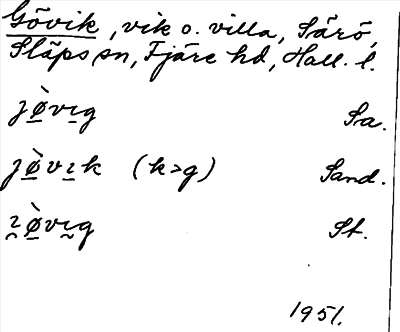 Gövik, vik o. villa, Särö,
Släps sn, Fjäre hd, Hall. l.
jø̱̀vi̱g Sa.
jø̱̀vi̱k (k>g) Sand.
ı̯ø̱̀vı̰g St.
1951.